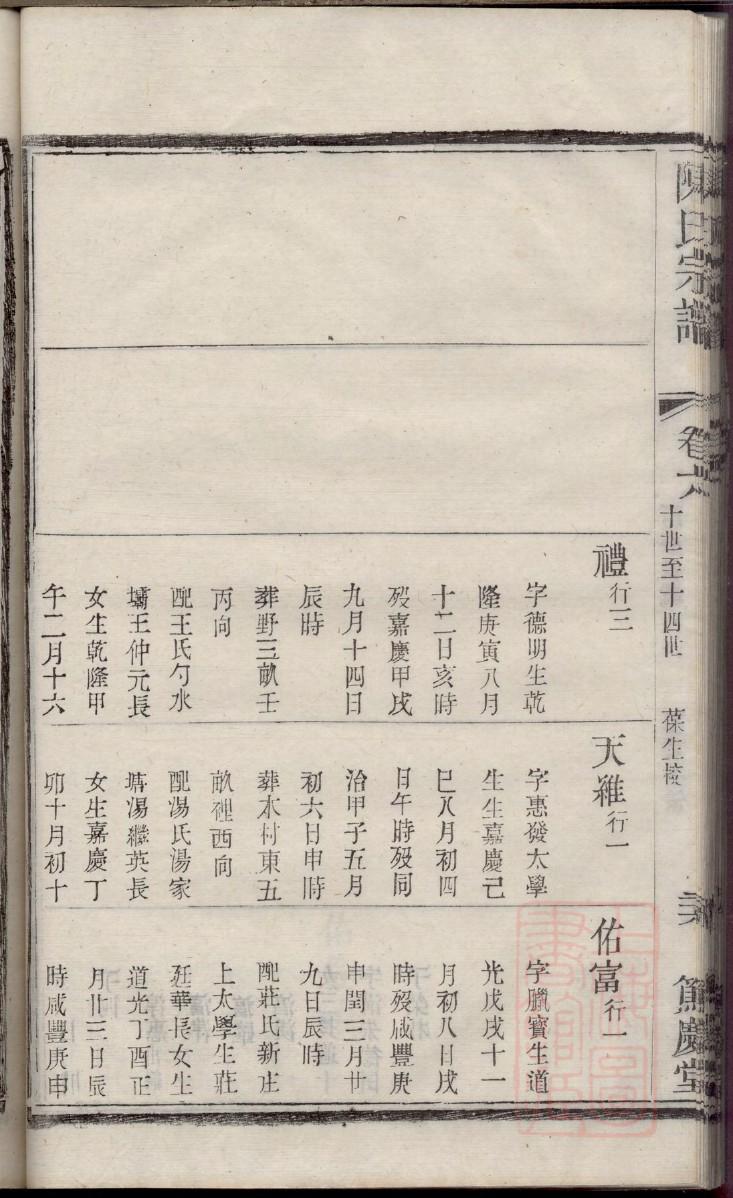 陳氏宗譜
卷六
十世至十四世
葆生校
篤慶堂
禮行三
字德明生乾
隆庚寅八月
十二日亥時
歿嘉慶甲戌
九月十四日
辰時
葬野三畝壬
丙向
配王氏勺水
壩王仲元長
女生乾隆甲
午二月十六
天維行一
字惠發太學
生生嘉慶己
巳八月初四
日午時歿同
治甲子五月
初六日申時
葬木村東五
畝裡西向
配湯氏湯家
塘湯繼英長
女生嘉慶丁
卯十月初十
佑富行一
字臘寶生道
光戊戌十一
月初八日戌
時歿咸豐庚
申閏三月廿
九日辰時
配莊氏新庄
上太學生莊
廷華長女生
道光丁酉正
月廿三日辰
時咸豐庚申